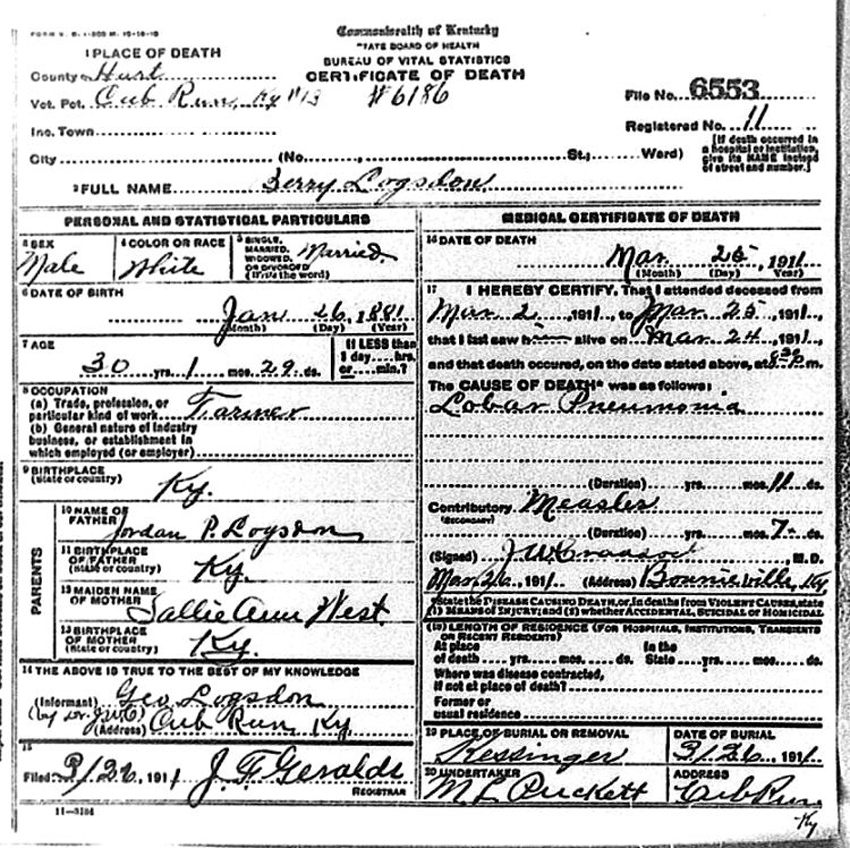 FORM V. S. 1-500 M. 10-10-10
Commonwealth of Kentucky
STATE BOARD OF HEALTH
BUREAU OF VITAL STATISTICS
CERTIFICATE OF DEATH
1 PLACE OF DEATH
County Hart
Vot. Pct. Cub Run, Ky #13 #6186
File No. 6553
Inc. Town
Registered No. 11
City (No. , St.; Ward)
[If death occurred in a hospital or institution, give its NAME instead of street and number.]
2 FULL NAME Berry Logsdon
PERSONAL AND STATISTICAL PARTICULARS
3 SEX Male
4 COLOR OR RACE White
5 SINGLE, MARRIED, WIDOWED, OR DIVORCED (Write the word) Married
6 DATE OF BIRTH
Jan 26, 1881
(Month) (Day) (Year)
7 AGE
30 yrs. 1 mos. 29 ds.
If LESS than 1 day hrs. or min.?
8 OCCUPATION
(a) Trade, profession, or particular kind of work Farmer
(b) General nature of industry business, or establishment in which employed (or employer)
9 BIRTHPLACE
(State or country) Ky.
PARENTS
10 NAME OF FATHER Jordan P. Logsdon
11 BIRTHPLACE OF FATHER (State or country) Ky.
12 MAIDEN NAME OF MOTHER Sallie Ann West
13 BIRTHPLACE OF MOTHER (State or country) Ky.
14 THE ABOVE IS TRUE TO THE BEST OF MY KNOWLEDGE
(Informant) Geo Logsdon
(by Dr. J.W.C.)
(Address) Cub Run, Ky.
15
Filed 3/26, 1911 J. F. Geralds
REGISTRAR
11-3184
MEDICAL CERTIFICATE OF DEATH
16 DATE OF DEATH
Mar 25, 1911
(Month) (Day) (Year)
17 I HEREBY CERTIFY, That I attended deceased from
Mar 2, 1911, to Mar 25, 1911,
that I last saw him alive on Mar 24, 1911,
and that death occurred, on the date stated above, at 8 30 P. m.
The CAUSE OF DEATH* was as follows:
Lobar Pneumonia
(Duration) yrs. mos. 11 ds.
Contributory Measles
(SECONDARY)
(Duration) yrs. mos. 7 ds.
(Signed) J W Craddock, M.D.
Mar 26, 1911 (Address) Bonnieville, Ky
*State the DISEASE CAUSING DEATH, or, in deaths from VIOLENT CAUSES, state
(1) MEANS OF INJURY; and (2) whether ACCIDENTAL, SUICIDAL or HOMICIDAL
(18) LENGTH OF RESIDENCE (FOR HOSPITALS, INSTITUTIONS, TRANSIENTS OR RECENT RESIDENTS)
At place of death yrs. mos. ds. In the State yrs. mos. ds.
Where was disease contracted, if not at place of death?
Former or usual residence
19 PLACE OF BURIAL OR REMOVAL
Kessinger
DATE OF BURIAL
3/26, 1911
20 UNDERTAKER
M L Puckett
ADDRESS
Cub Run, Ky